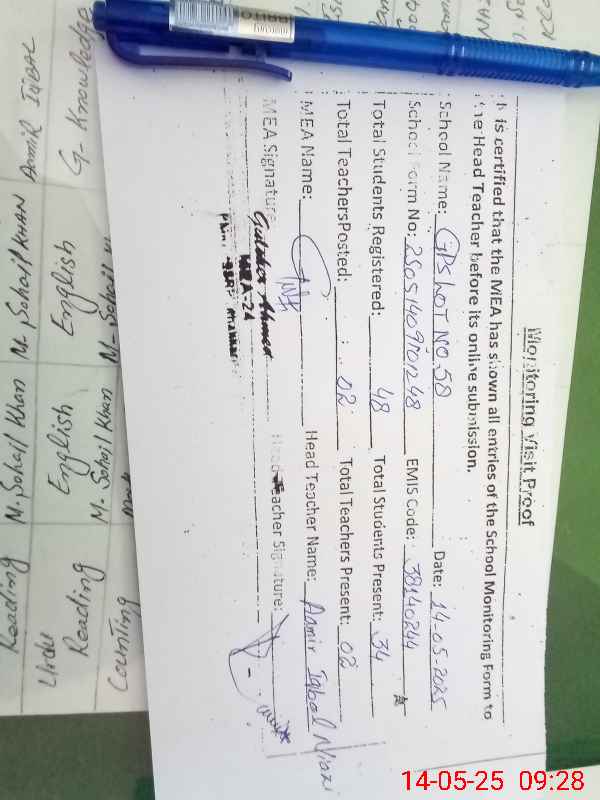 Monitoring Visit Proof
It is certified that the MEA has shown all entries of the School Monitoring Form to
the Head Teacher before its online submission.
School Name: GPS LOT NO. 58 Date: 14-05-2025
School Form No: EMIS Code: 38140244
Total Students Registered: 48 Total Students Present: 34
Total Teachers Posted: 02 Total Teachers Present: 02
MEA Name: Head Teacher Name: Aamir Iqbal Niazi
MEA Signature Head Teacher Signature:
Ahmed
MEA-24
Aamir Iqbal
G- Knowledge
M. Sohail Khan
English
M. Sohail Khan
M. Sohail Khan
English
M. Sohail Khan
Reading
Urdu
Reading
Counting
14-05-25 09:28